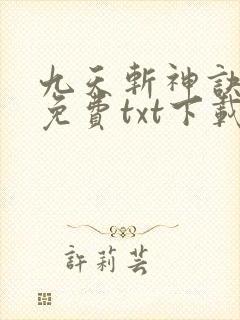 九天斬神訣
免費txt下載
許莉芸